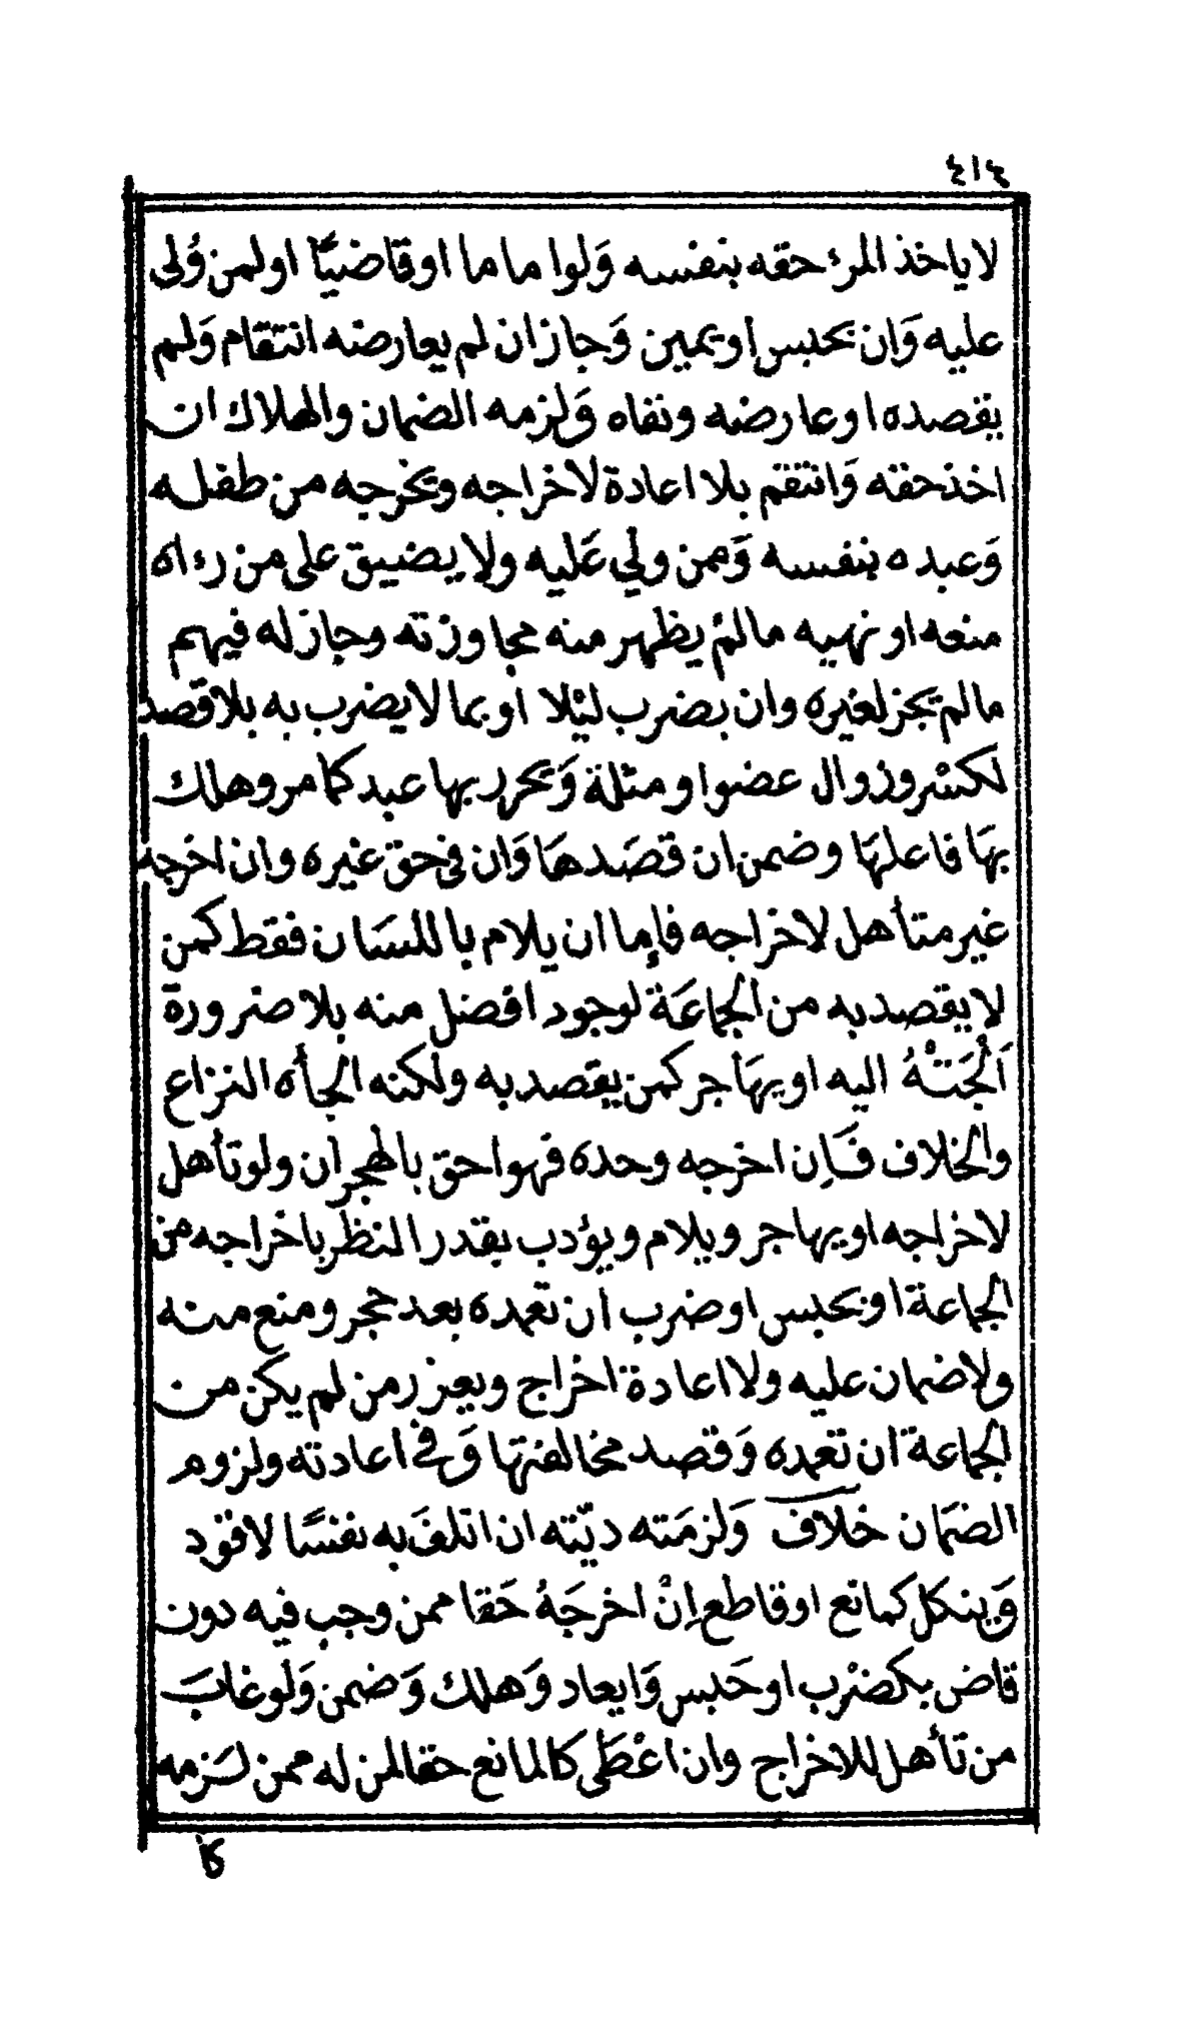 ٤١٤
لا ياخذ المرء حقه بنفسه وَلوا ماما اوقاضيًّا اولمن وُلى
عليه وَان بحبس اويمين وَجازان لم يعارضه انتقام وَلم
يقصده اوعارضه ونفاه وَلزمه الضمان والهلاك ان
اخذ حقه وَانتقم بلا اعادة لاخراجه ويخرجه من طفله
وَعبده بنفسه وَممن ولي عَليه ولا يضيق على من رءاه
منعه اونهيه مالم يظهر منه مجاوزته وجازله فيهم
مالم يجز لغيره وان بضرب ليْلا اوبما لا يضرب به بلاقصد
لكسْر وزوال عضوا ومثلة وَيحرر بها عبد كما مر وهلك
بهَا فاعلهَا وضمن ان قصَدهَا وَان في حق غيره وان اخرجه
غير متأهل لاخراجه فإما ان يلام باللسَان فقط كمن
لا يقصد به من الجماعَة لوجود افضل منه بلا ضرورة
اَلْجَتْهُ اليه اويهَاجر كمن يقصد به ولكنه الجأه النزاع
والخلاف فَإِن اخرجه وحده فهواحق بالهجران ولوتأهل
لاخراجه اويهاجر ويلام ويؤدب بقدر النظر باخراجه من
الجماعة اوبحبس اوضرب ان تعمده بعد حجر ومنع منه
ولاضمان عليه ولااعادة اخراج ويعزر من لم يكن من
الجماعة ان تعمده وَقصد مخالفتها وَفي اعادته ولزوم
الضمَان خلاف وَلزمَته ديّته ان اتلفَ به نفسًا لاقود
وَينكل كمانع اوقاطع إنْ اخرجَهُ حَقا ممن وجب فيه دون
قاض بكضرْب اوحَبس وَايعاد وَهلك وَضمن وَلوغابَ
من تأهل للاخراج وان اعْطَى كالمانع حقالمن له ممن لزمه
كا